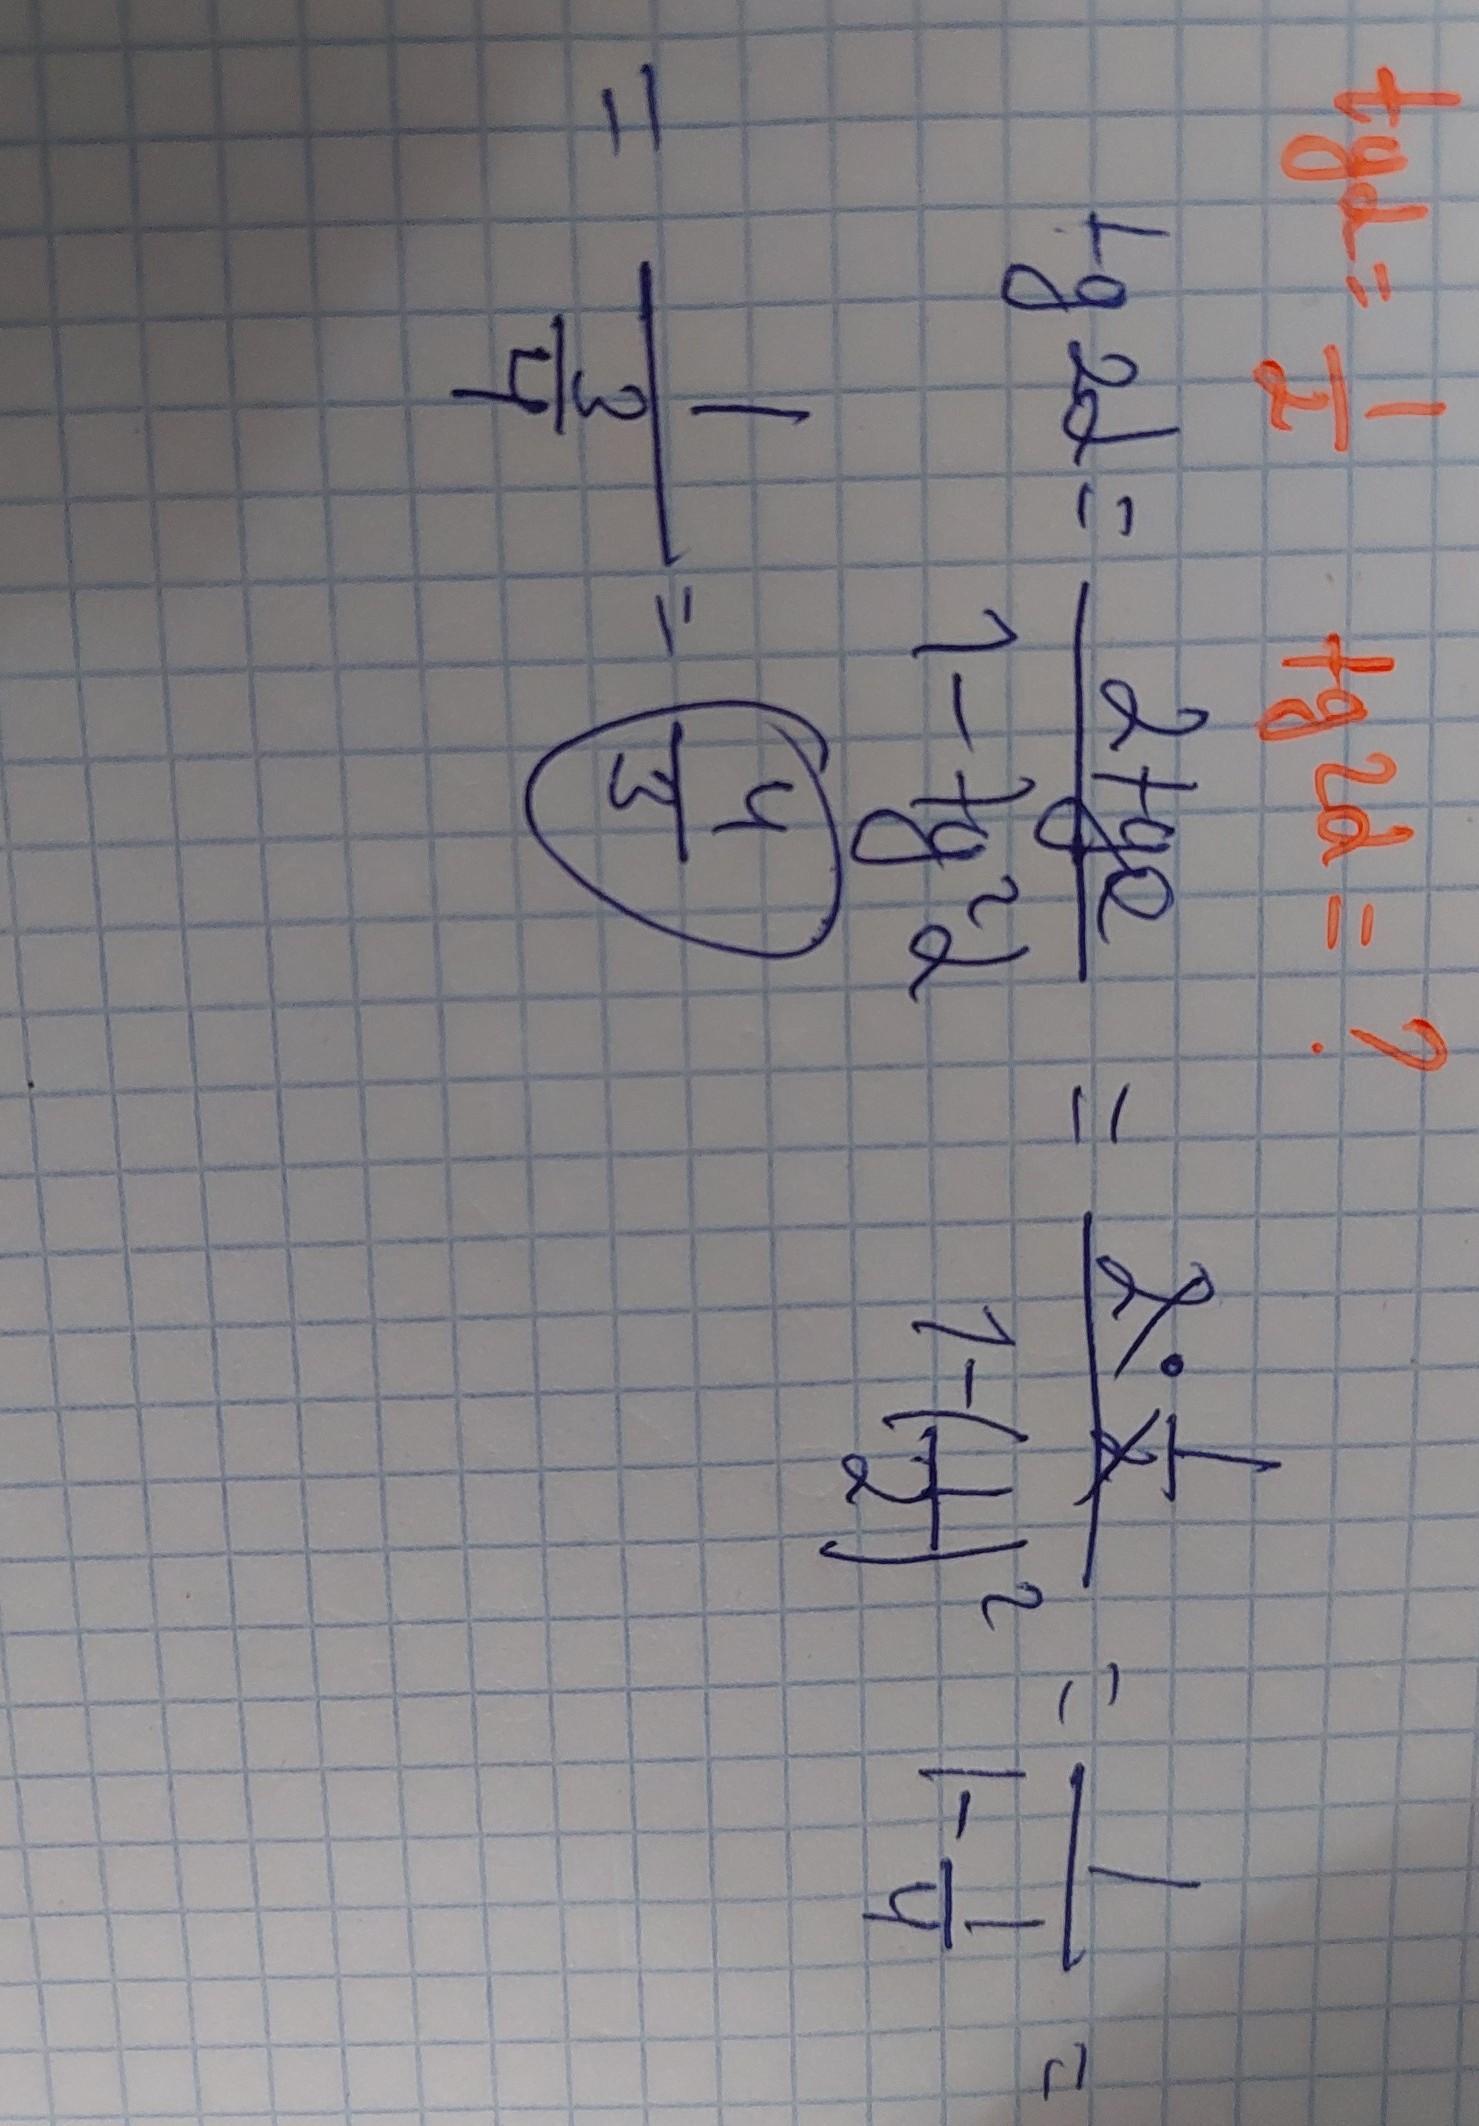 tgα = 1/2 tg2α = ?
tg2α = 2tgα/(1 - tg²α) = (2 · 1/2)/(1 - (1/2)²) = 1/(1 - 1/4) =
= 1/(3/4) = 4/3